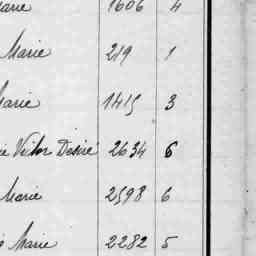 Marie 1606 4
Marie 219 1
Marie 1415 3
Victor Désiré 2634 6
Marie 2598 6
Marie 2282 5